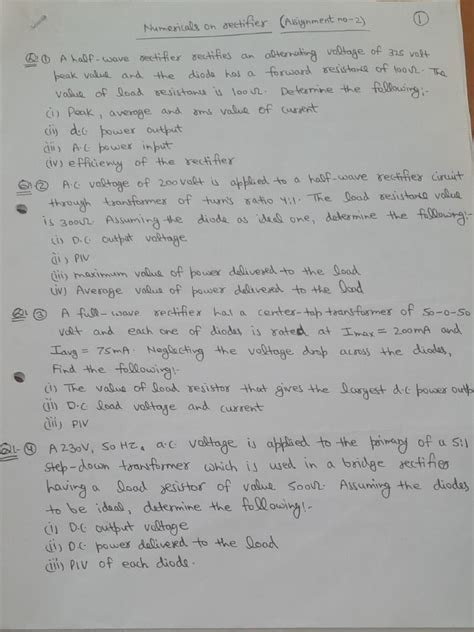 Numericals on rectifier (Assignment no-2) ①
Q:① A half-wave rectifier rectifies an alternating voltage of 325 volt
peak value and the diode has a forward resistance of 100Ω. The
value of load resistance is 100Ω. Determine the following:-
(i) Peak, average and rms value of current
(ii) d.c power output
(iii) A.C power input
(iv) efficieny of the rectifier
Q:② A.C voltage of 200 volt is applied to a half-wave rectifier circuit
through transformer of turn's ratio 4:1. The load resistance value
is 300Ω Assuming the diode as ideal one, determine the following:-
(i) D.C output voltage
(ii) PIV
(iii) maximum value of power delivered to the load
(iv) Average value of power delivered to the load
Q:③ A full-wave rectifier has a center-tap transformer of 50-0-50
volt and each one of diodes is rated at Imax = 200mA and
Iavg = 75mA. Neglecting the voltage drop across the diodes,
Find the following:-
(i) The value of load resistor that gives the largest d.c power outp
(ii) D.C load voltage and current
(iii) PIV
Q:-④ A 230V, 50 Hz, a.c. voltage is applied to the primary of a 5:1
step-down transformer which is used in a bridge rectifier
having a load resistor of value 500Ω. Assuming the diodes
to be ideal, determine the following:-
(i) D.C output voltage
(ii) D.C power delivered to the load
(iii) PIV of each diode.